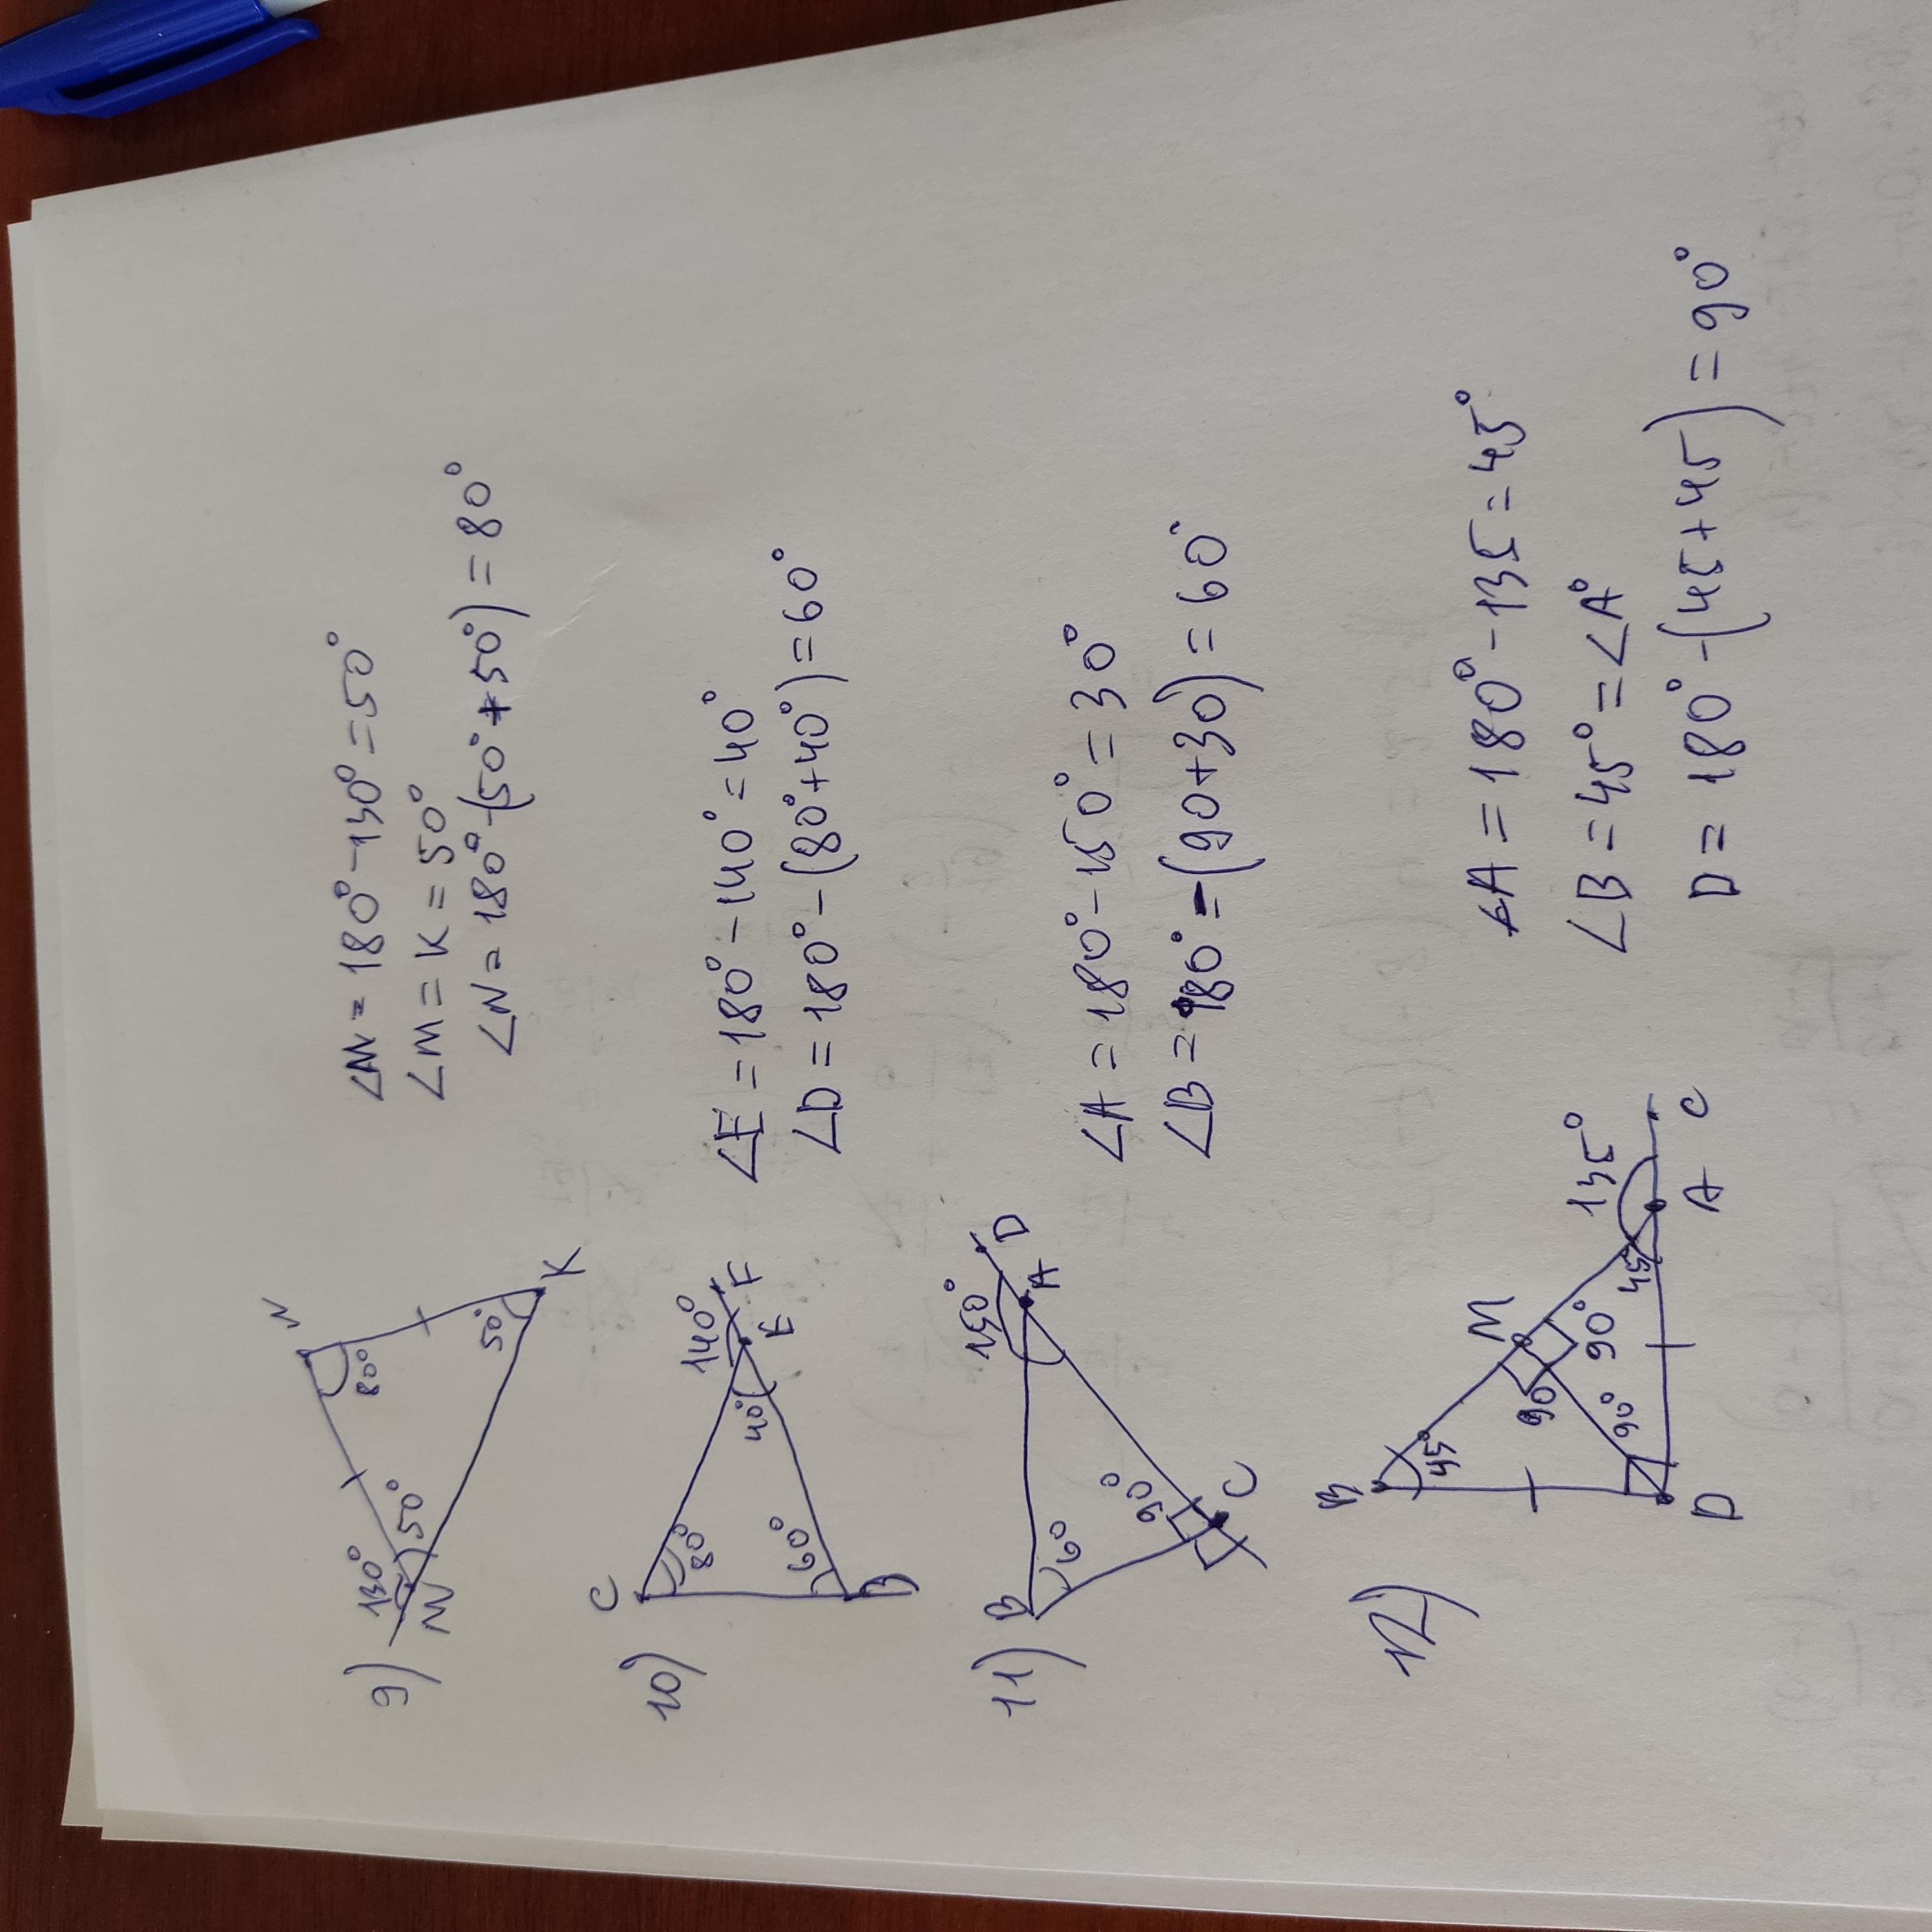 9)
N
80°
130°
50°
M
50°
K
∠M = 180° - 130° = 50°
∠M = K = 50°
∠N = 180° - (50° + 50°) = 80°
10)
C
80°
60°
D
40°
140°
E
F
∠E = 180° - 140° = 40°
∠D = 180° - (80° + 40°) = 60°
11)
B
60°
90°
C
150°
A
D
∠A = 180° - 150° = 30°
∠B = 180° - (90 + 30) = 60°
12)
B
45°
M
90
90°
90°
D
45
135°
A
C
∠A = 180° - 135 = 45°
∠B = 45° = ∠A°
D = 180° - (45 + 45) = 90°